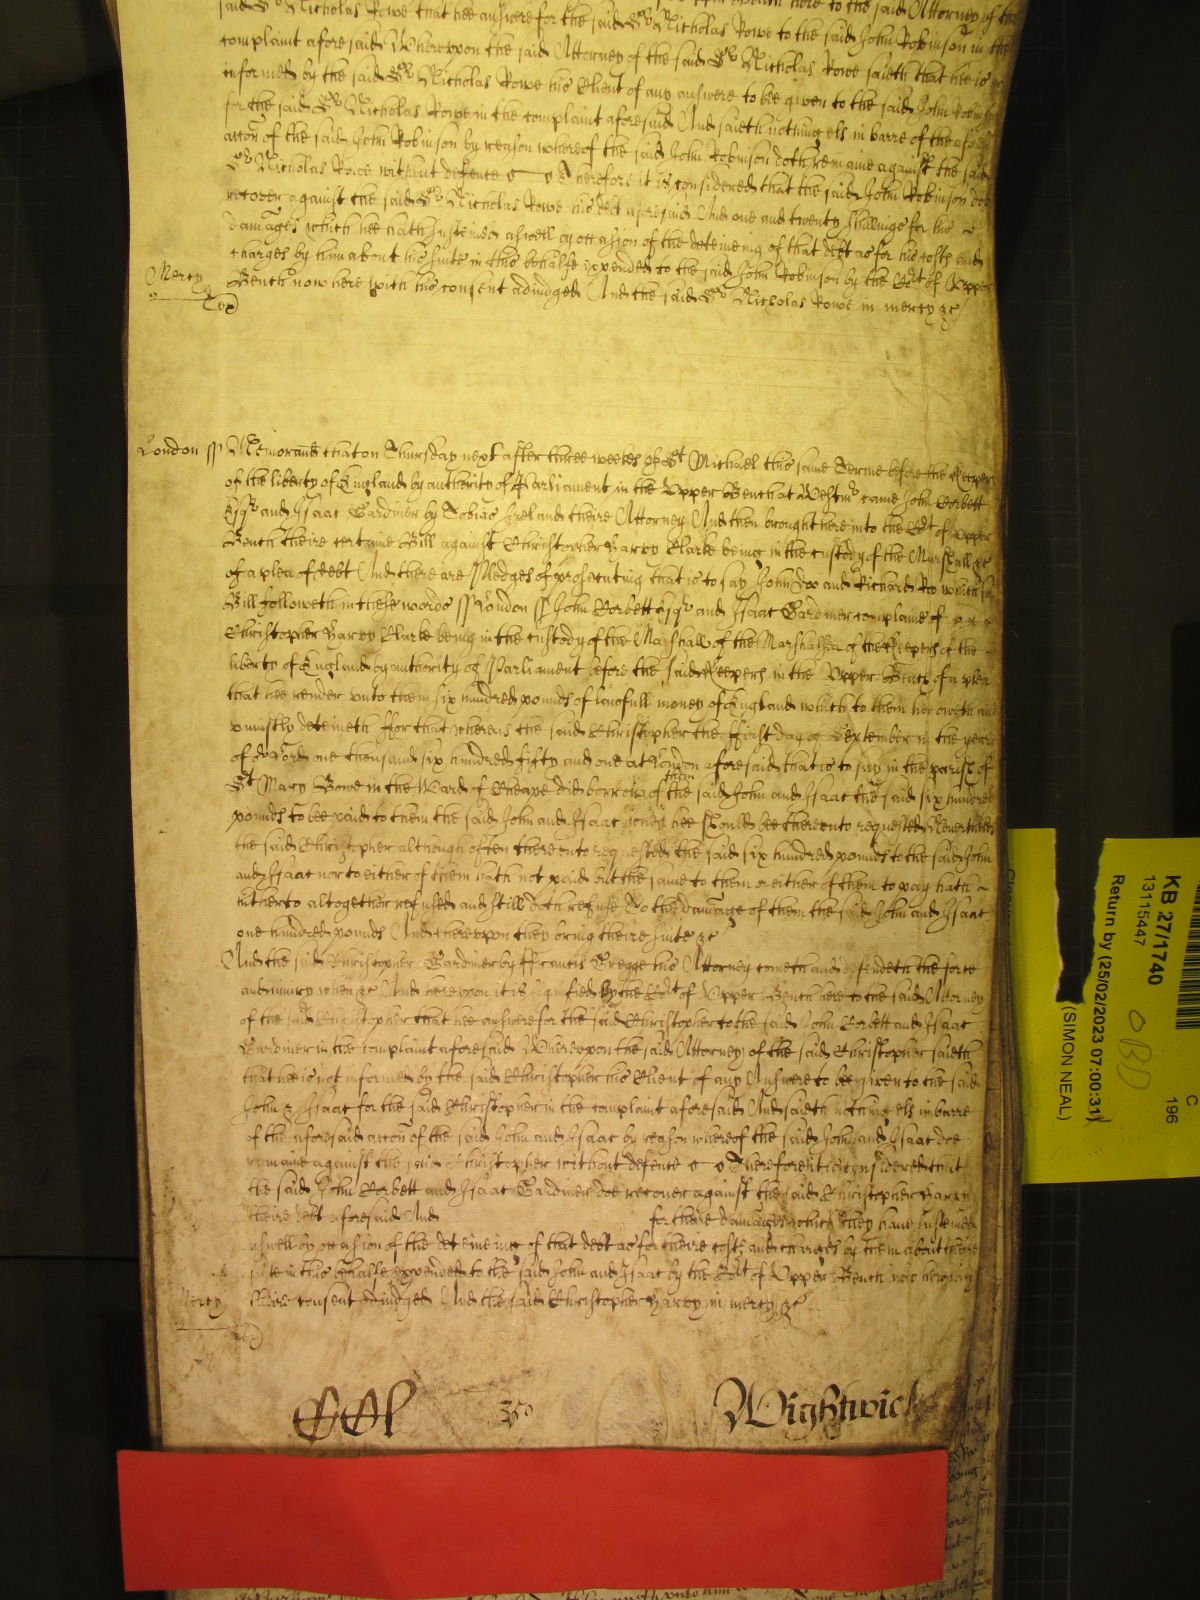 said Sr Nicholas Rowe that hee answere for the said Sr Nicholas Rowe to the said John Robinson in the
complaint aforesaid Whereupon the said Attorney of the said Sr Nicholas Rowe saieth that hee is
informed by the said Sr Nicholas Rowe his Client of any answere to bee given to the said John Robinson
for the said Sr Nicholas Rowe in the complaint aforesaid And saieth nothing els in barre of the aforesaid
accon of the said John Robinson by reason whereof the said John Robinson doth remaine against the said
Sr Nicholas Rowe without defence Therefore it is considered that the said John Robinson doe
recover against the said Sr Nicholas Rowe his debt aforesaid And one and twenty shillings for his
damages which hee hath susteined aswell by occasion of the deteineing of that debt as for his costs and
charges by him about his suite in this behalfe expended to the said John Robinson by the Cort of Upper
Mercy
Bench now here with his consent adiudged And the said Sr Nicholas Rowe in mercy &c
London ss Memorand that on Thursday next after three weekes of St Michael this same Terme before the Keepers
of the liberty of England by authority of Parliament in the Upper Bench at Westmr came John Corbett
Esqr and Isaac Gardiner by Tobias Ireland theire Attorney And then brought here into the Cort of Upper
Bench theire certaine Bill against Christopher Harvy Clarke being in the custody of the Marshall &c
of a plea of debt And there are Pledges of prosecuting that is to say John Doo and Richard Roo which said
Bill followeth in these words ss London ss John Corbett Esqr and Isaac Gardiner complaine of
Christopher Harvy Clarke being in the custody of the Marshall of the Marshalsea of the Keepers of the
liberty of England by authority of Parliament before the said Keepers in the Upper Bench of a plea
that hee render unto them six hundred pounds of lawfull money of England which to them he oweth and
uniustly deteineth ffor that whereas the said Christopher the ffirst day of September in the yeare
of or Lord one thousand six hundred fifty and one at London aforesaid that is to say in the parish of
St Mary Bowe in the Ward of Cheape did borrow of them the said John and Isaac the said six hundred
pounds to bee paid to them the said John and Isaac when hee should bee thereunto requested Neverthelesse
the said Christopher although often thereunto requested the said six hundred pounds to the said John
and Isaac nor to either of them hath not paid but the same to them or either of them to pay hath
hitherto altogether refused and still doth refuse To the damage of them the said John and Isaac
one hundred pounds And thereupon they bring theire suite &c
And the said Christopher Gardiner by ffrancis Gregge his Attorney cometh and defendeth the force
and iniury when &c And hereupon it is signified by the Cort of Upper Bench here to the said Attorney
of the said Christopher that hee answere for the said Christopher to the said John Corbett and Isaac
Gardiner in the complaint aforesaid Whereupon the said Attorney of the said Christopher saieth
that he is not informed by the said Christopher his Client of any Answere to bee given to the said
John & Isaac for the said Christopher in the complaint aforesaid And saieth nothing els in barre
of the aforesaid accon of the said John and Isaac by reason whereof the said John and Isaac doe
remaine against the said Christopher without defence Therefore it is considered that
the said John Corbett and Isaac Gardiner doe recover against the said Christopher Harvy
theire debt aforesaid And for theire damages which they have susteined
aswell by occasion of the deteineing of that debt as for theire costs and charges by them about theire
suite in this behalfe expended to the said John and Isaac by the Cort of Upper Bench now here with
Mercy
theire consent adiudged And the said Christopher Harvy in mercy &c
Wightwick
KB 27/1740
13115447
Return by (25/02/2023 07:00:31)
(SIMON NEAL)
C
196